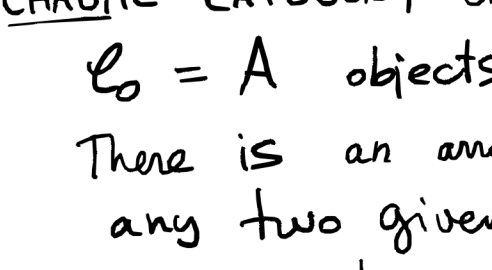 CHAOTIC CATEGORY
𝒞₀ = A objects
There is an
any two given